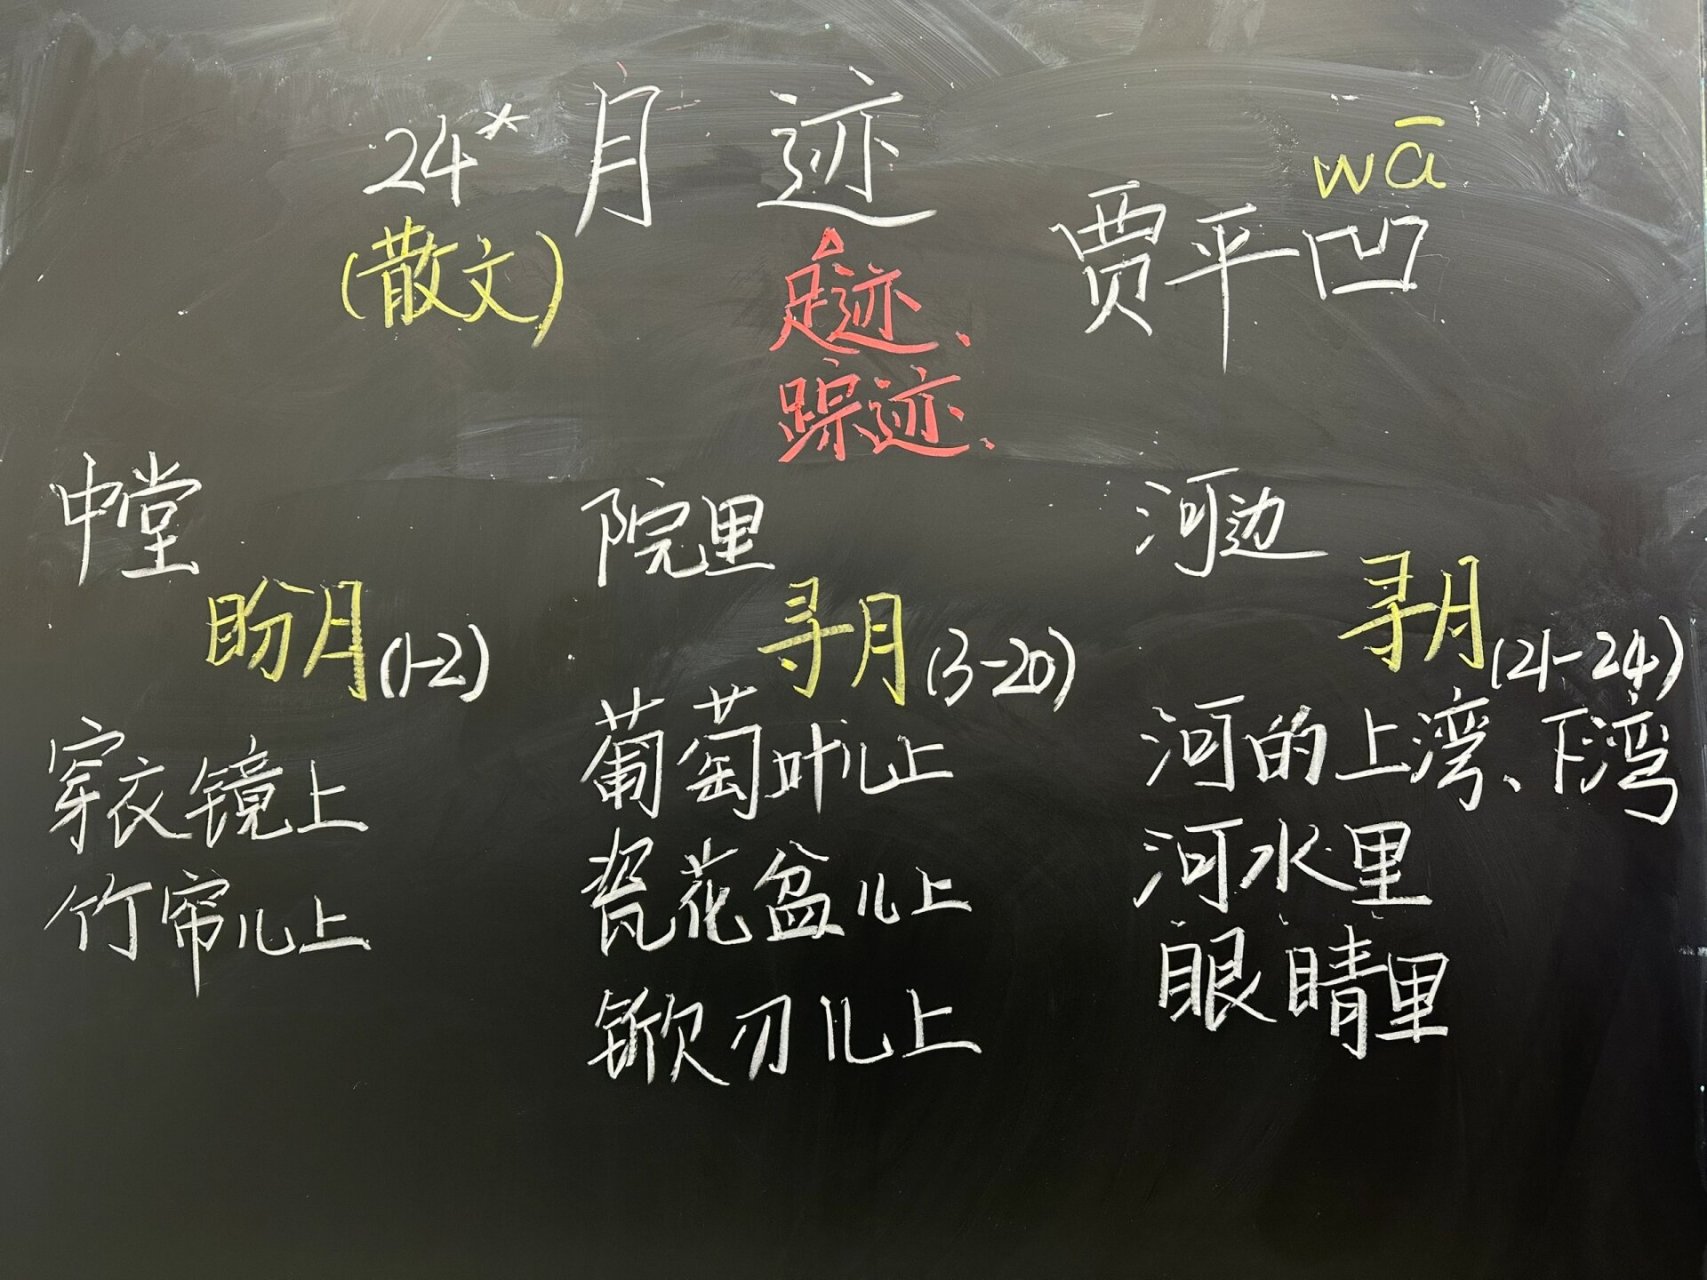 24* 月 迹
wā
贾平凹
(散文)
足迹、
踪迹、
中堂
盼月(1-2)
穿衣镜上
竹帘儿上
院里
寻月(3-20)
葡萄叶儿上
瓷花盆儿上
锨刃儿上
河边
寻月(21-24)
河的上湾、下湾
河水里
眼睛里